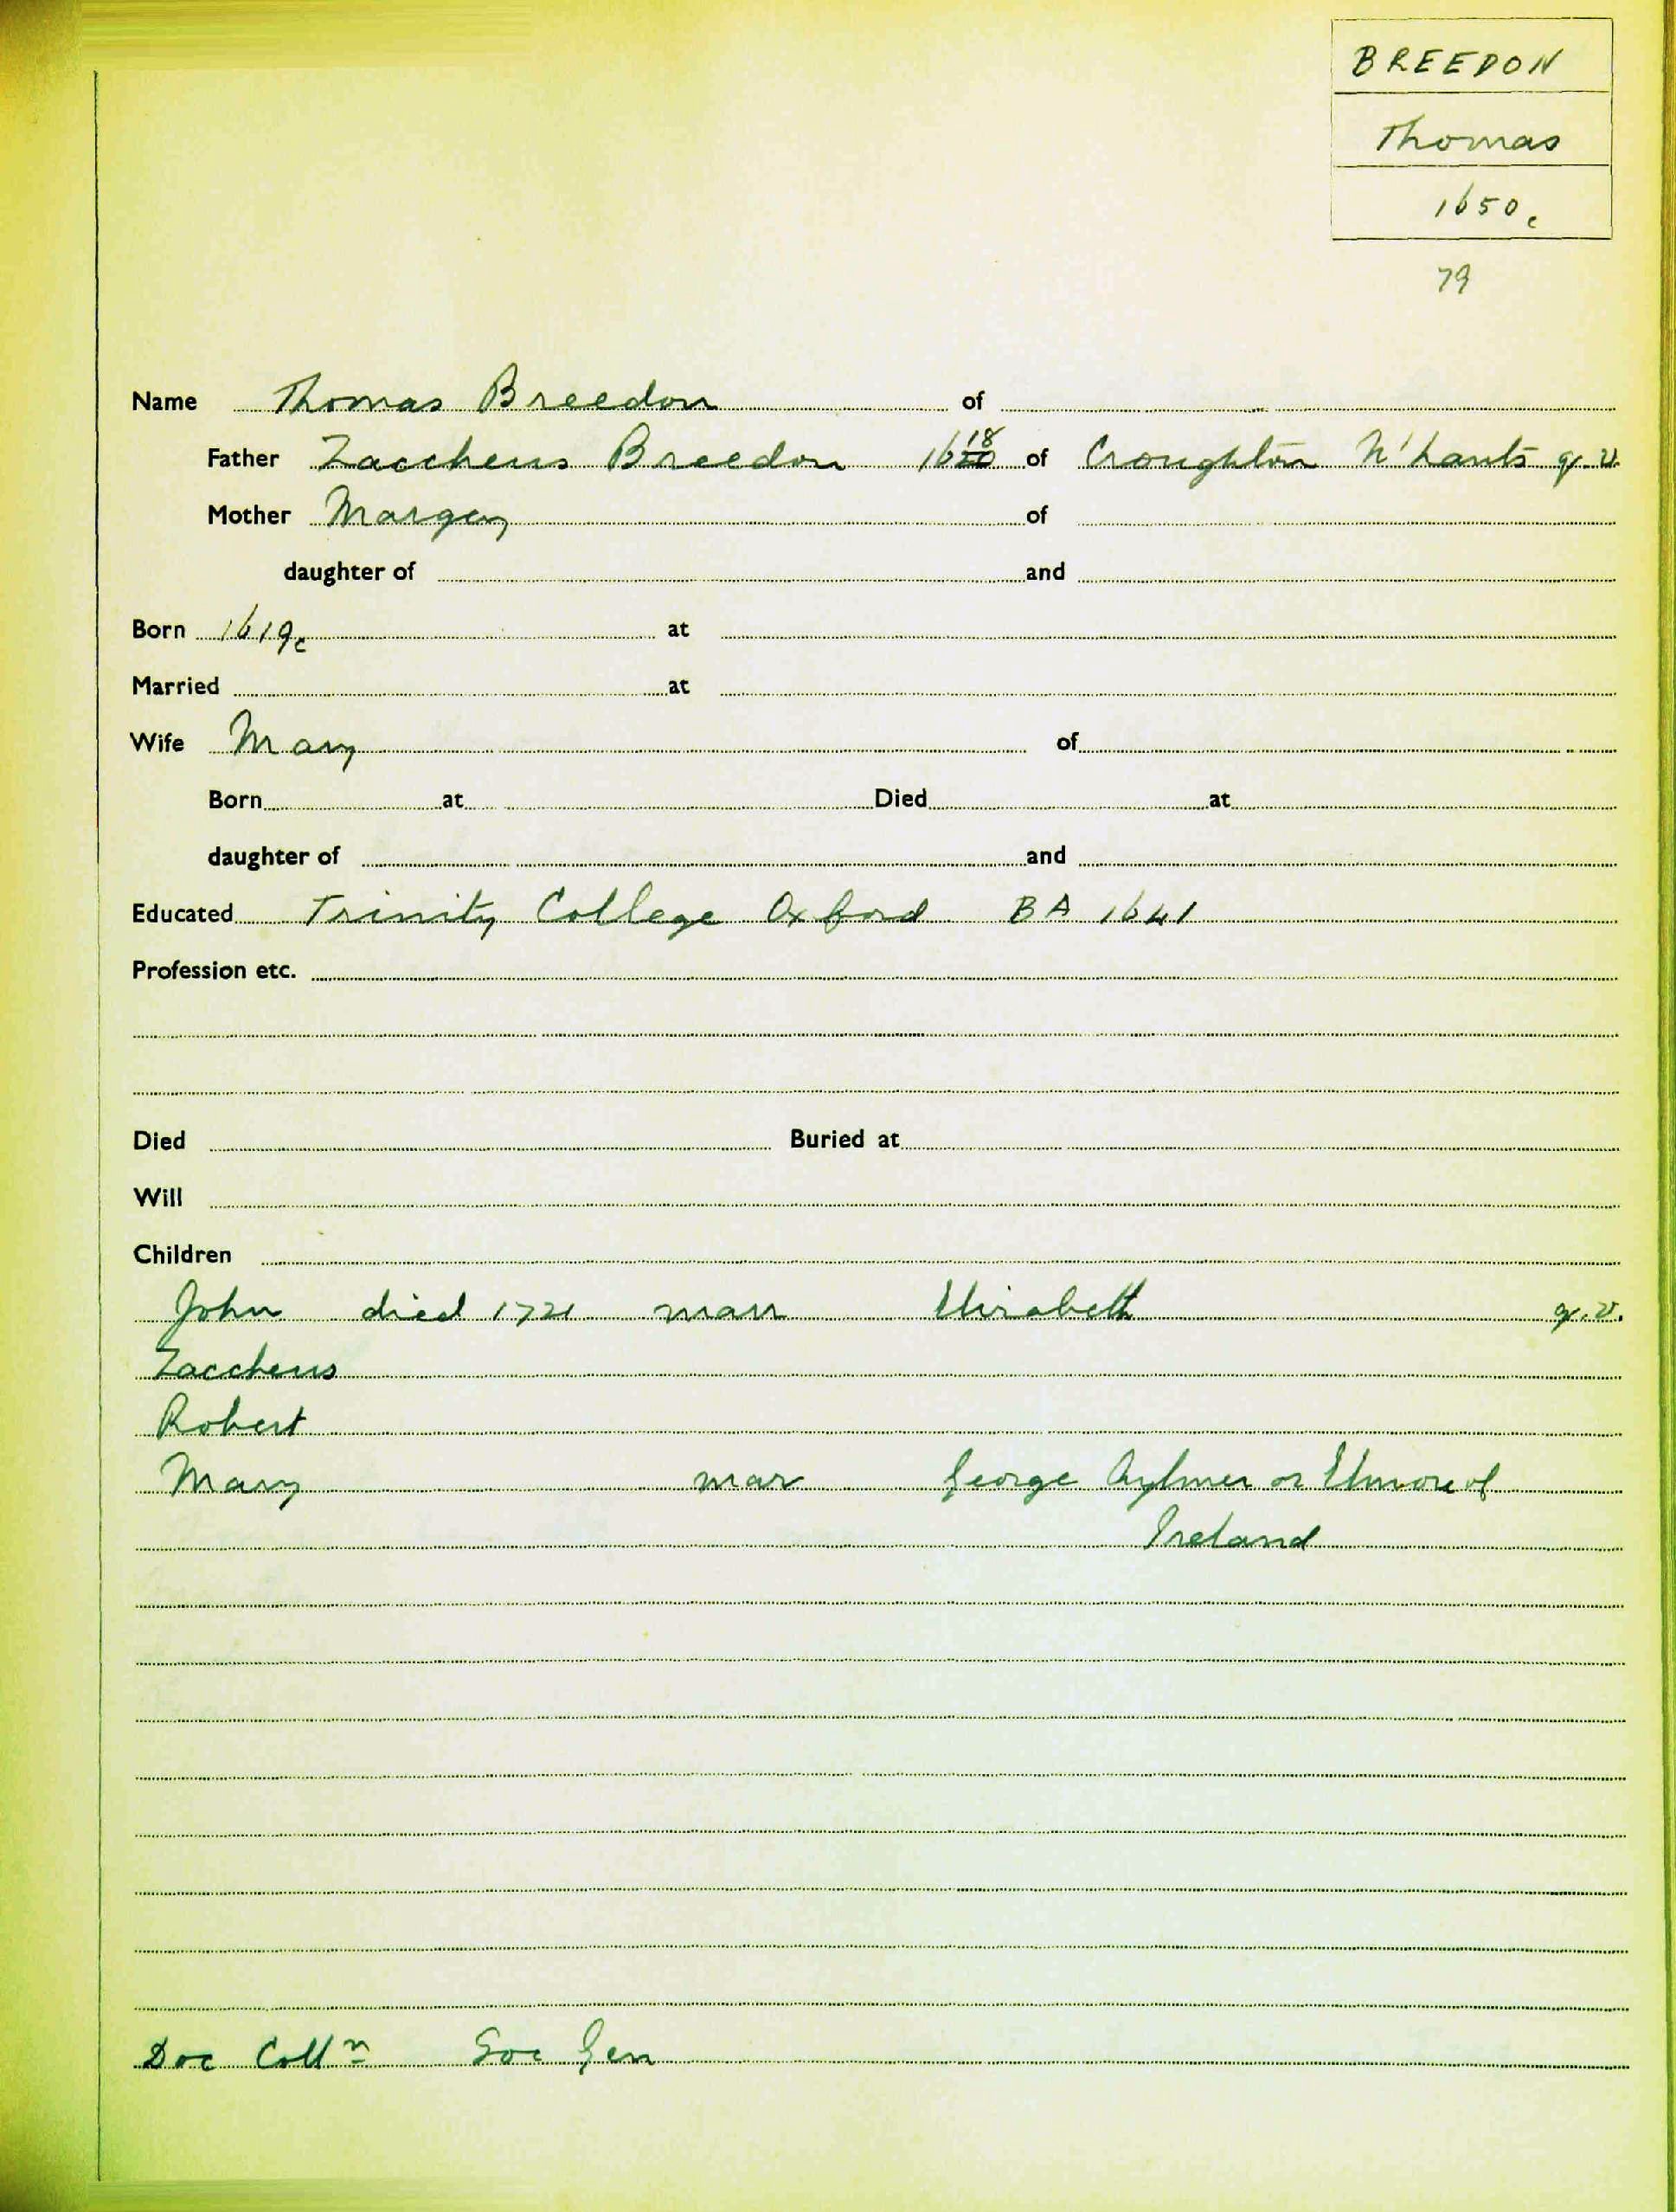 BREEDON
Thomas
1650c
79
Name Thomas Breedon of
Father Zaccheus Breedon 1620 18 of Croughton N'hants q.v.
Mother Margery of
daughter of and
Born 1619c at
Married at
Wife Mary of
Born at Died at
daughter of and
Educated Trinity College Oxford BA 1641
Profession etc.
Died Buried at
Will
Children
John died 1721 marr Elizabeth q.v.
Zaccheus
Robert
Mary mar George Aylmer or Elmore of
Ireland
Doc Colln Soc Gen